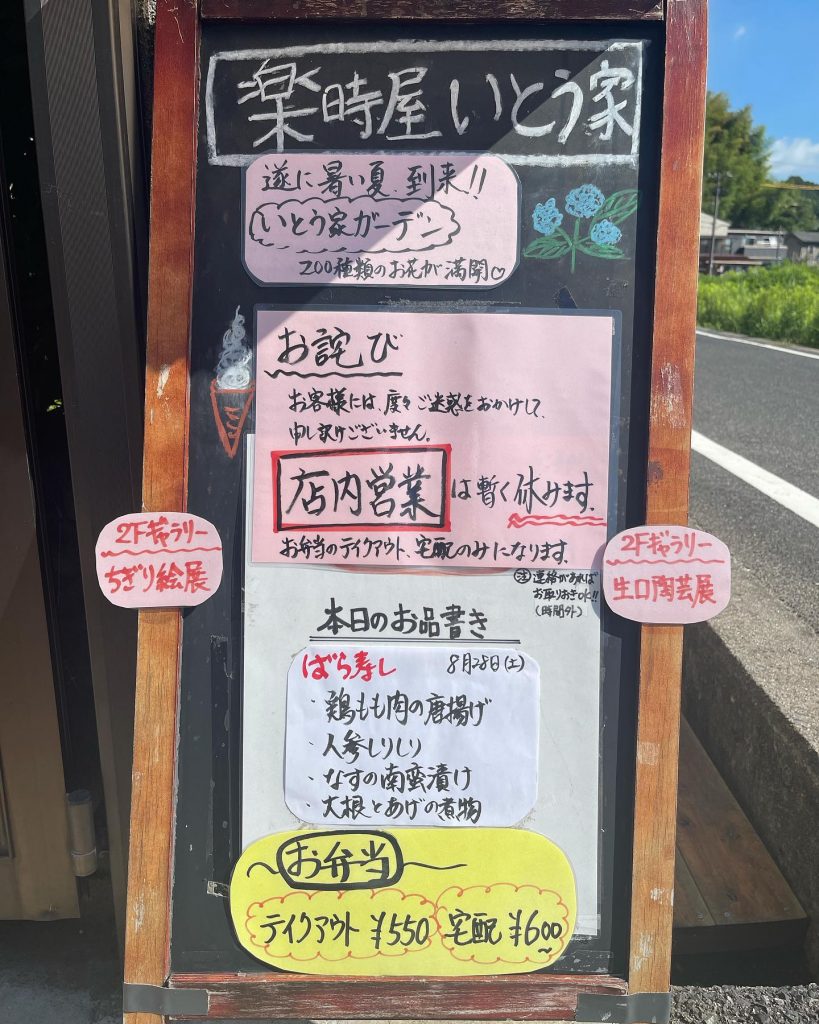 楽時屋 いとう家
遂に暑い夏、到来!!
いとう家ガーデン
200種類のお花が満開♡
お詫び
お客様には、度々ご迷惑をおかけして、
申し訳けございません。
店内営業は暫く休みます。
お弁当のテイクアウト、宅配のみになります。
注 連絡があれば
お取りおきOK!!
(時間外)
2Fギャラリー
ちぎり絵展
2Fギャラリー
生口陶芸展
本日のお品書き
ばら寿し 8月28日(土)
・鶏もも肉の唐揚げ
・人参しりしり
・なすの南蛮漬け
・大根とあげの煮物
お弁当
テイクアウト ¥550 宅配 ¥600